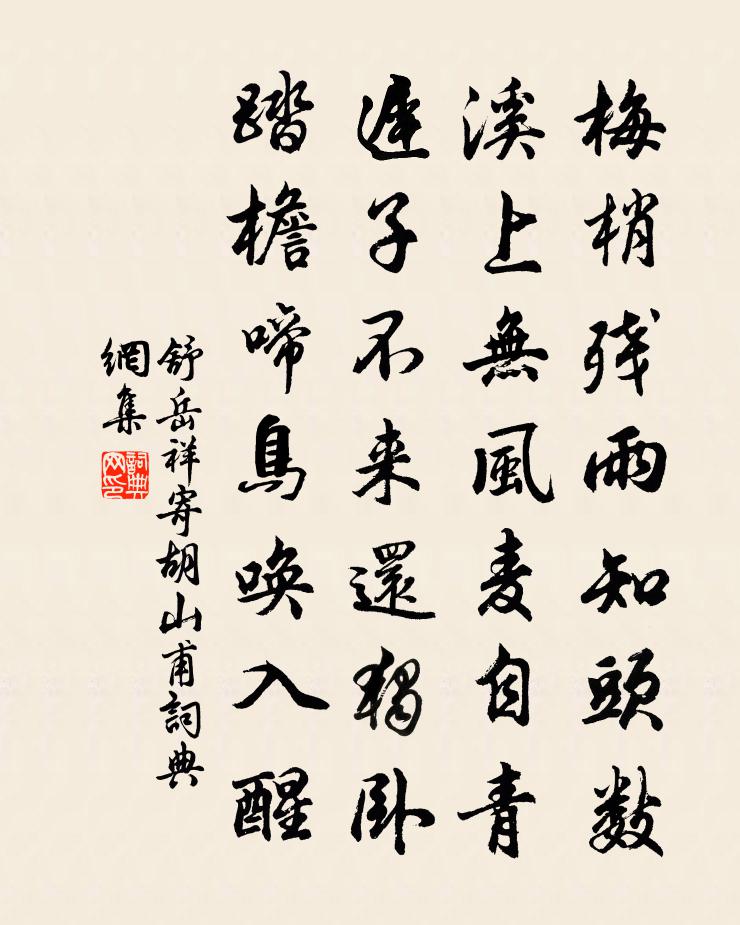 梅梢残雨知頭数
溪上無風麦自青
遲子不来還獨卧
踏檐啼鳥喚入醒
舒岳祥寄胡山甫詞典
網集
詞典
网印